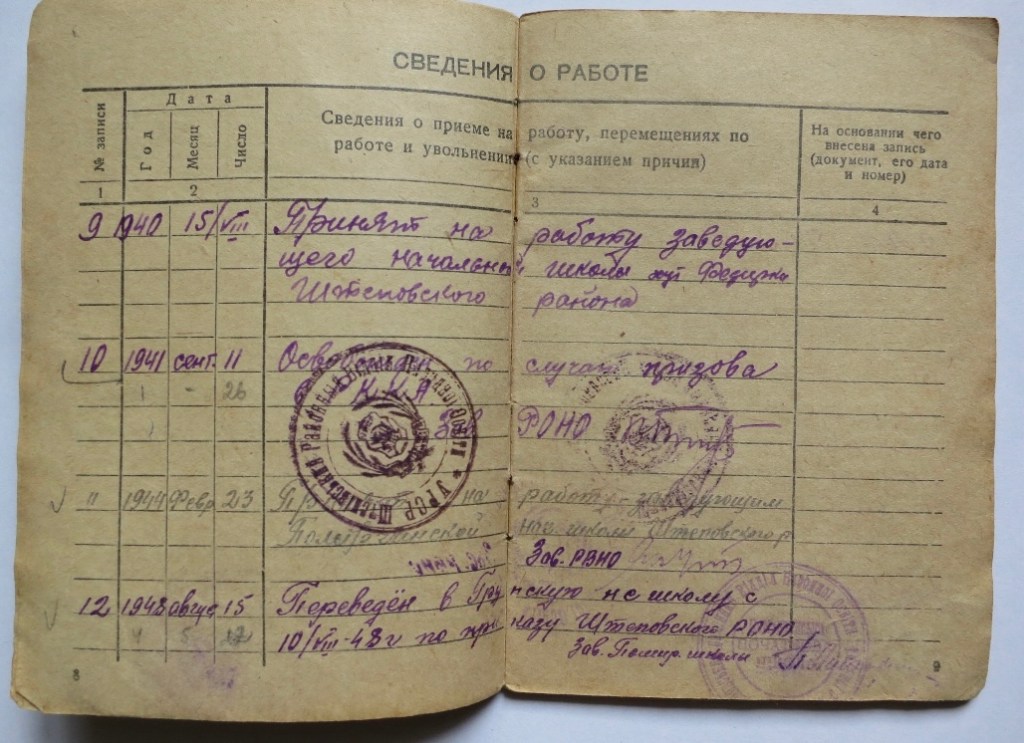 СВЕДЕНИЯ О РАБОТЕ
№ записи
Дата
Год
Месяц
Число
Сведения о приеме на работу, перемещениях по
работе и увольнении (с указанием причин)
На основании чего
внесена запись
(документ, его дата
и номер)
1 2 3 4
9 1940 15/VIII Принят на работу заведую-
щего начальной школы хут
Штеповского района
10 1941 сент. 11 Освобожден по случаю призова
1 - 26 К.К.А
Зав РОНО
11 1944 Февр 23 на работу заведующим
нач. школы Штеповского р.
Зав. РВНО
12 1948 август 15 Переведён в нс школу с
4 5 10/VIII-48 г по приказу Штеповского РОНО
Зав. школы
УРСР
8
9